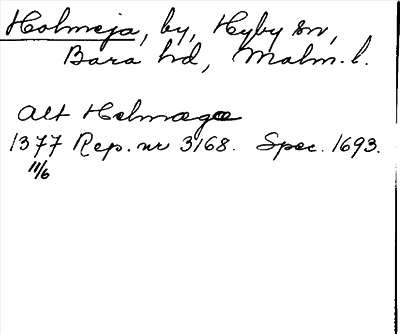 Holmeja, by, Hyby sn,
Bara hd, Malm. l.
alt Holmæga
1377 Rep. nr 3168. Spec. 1693.
11/6